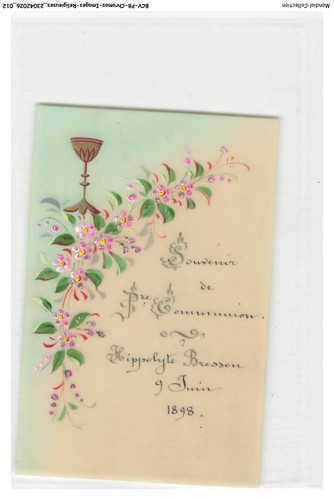 Mondial-Collection
BCV-PB-Chromos-Images-Religieuses_23042026_012
Souvenir
de
Pre Communion.
Hippolyte Bresson
9 Juin
1898.